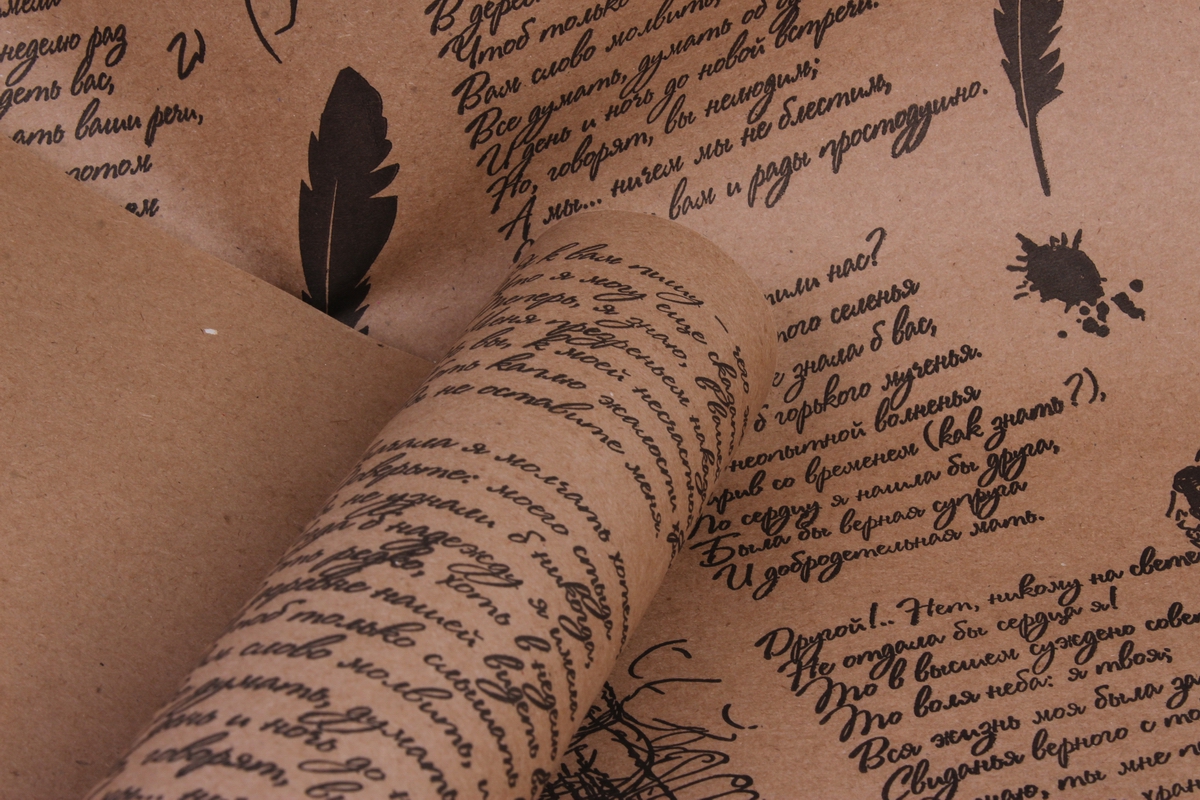 неделю раз
деть вас,
ать ваши речи,
потом
Чтоб только
Вам слово молвить,
Все думать, думать об од
И день и ночь до новой встречи.
Но, говорят, вы нелюдим;
А мы... ничем мы не блестим,
вам и рады простодушно.
тили нас?
того селенья
е знала б вас,
б горького мученья.
неопытной волненья
рив со временем (как знать?),
По сердцу я нашла бы друга,
Была бы верная супруга
И добродетельная мать.
Другой!.. Нет, никому на свете
Не отдала бы сердца я!
То в высшем суждено сове
То воля неба: я твоя;
Вся жизнь моя была за
Свиданья верного с то
наю, ты мне п
хран
к вам пишу –
то я могу еще сказать
теперь, я знаю, в ваше
меня презреньем наказ
вы, к моей несчастной
ть каплю жалости х
не оставите меня.
чала я молчать хотел
оверьте: моего стыда
не узнали б никогда,
б надежду я имела
ть редко, хоть в неделю
деревне нашей видеть
об только слышать
слово молвить, и
думать, думать
ень и ночь до
говорят,